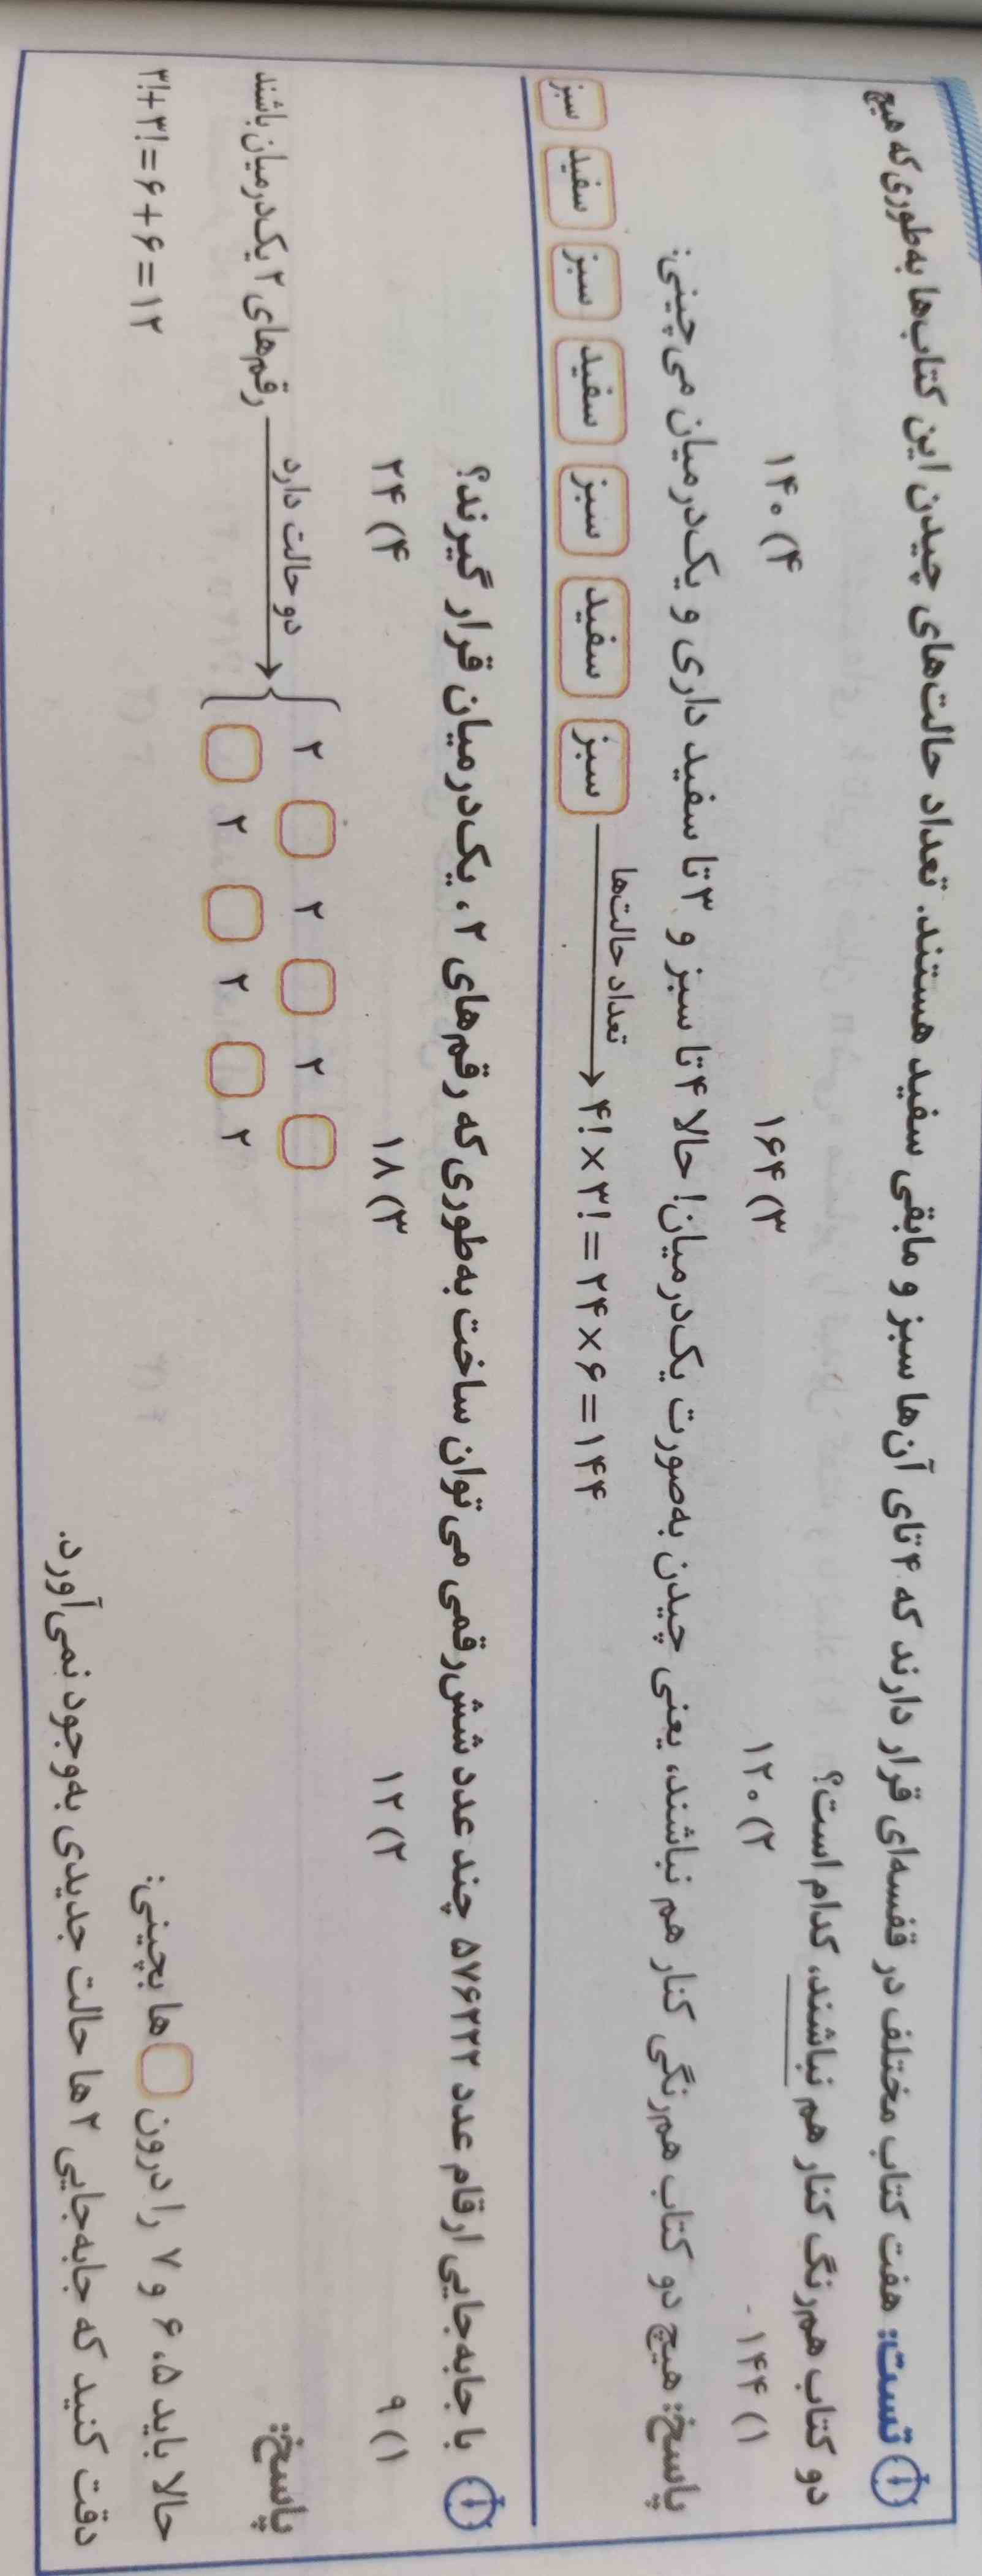 تست: هفت کتاب مختلف در قفسه‌ای قرار دارند که ۴ تای آن‌ها سبز و مابقی سفید هستند. تعداد حالت‌های چیدن این کتاب‌ها به‌طوری که هیچ
دو کتاب هم‌رنگ کنار هم نباشند، کدام است؟
۱) ۱۴۴ ۲) ۱۲۰ ۳) ۱۶۴ ۴) ۱۴۰
پاسخ: هیچ دو کتاب هم‌رنگی کنار هم نباشند، یعنی چیدن به‌صورت یک‌درمیان! حالا ۴ تا سبز و ۳ تا سفید داری و یک‌درمیان می‌چینی:
سبز سفید سبز سفید سبز سفید سبز تعداد حالت‌ها → ۴! × ۳! = ۲۴ × ۶ = ۱۴۴
با جابه‌جایی ارقام عدد ۵۷۶۲۲۲ چند عدد شش‌رقمی می‌توان ساخت به‌طوری که رقم‌های ۲، یک‌درمیان قرار گیرند؟
۱) ۹ ۲) ۱۲ ۳) ۱۸ ۴) ۲۴
پاسخ:
رقم‌های ۲ یک‌درمیان باشند دو حالت دارد → { ۲ □ ۲ □ ۲ □
□ ۲ □ ۲ □ ۲
حالا باید ۵، ۶ و ۷ را درون □ ها بچینی:
۳! + ۳! = ۶ + ۶ = ۱۲
دقت کنید که جابه‌جایی ۲ ها حالت جدیدی به‌وجود نمی‌آورد.